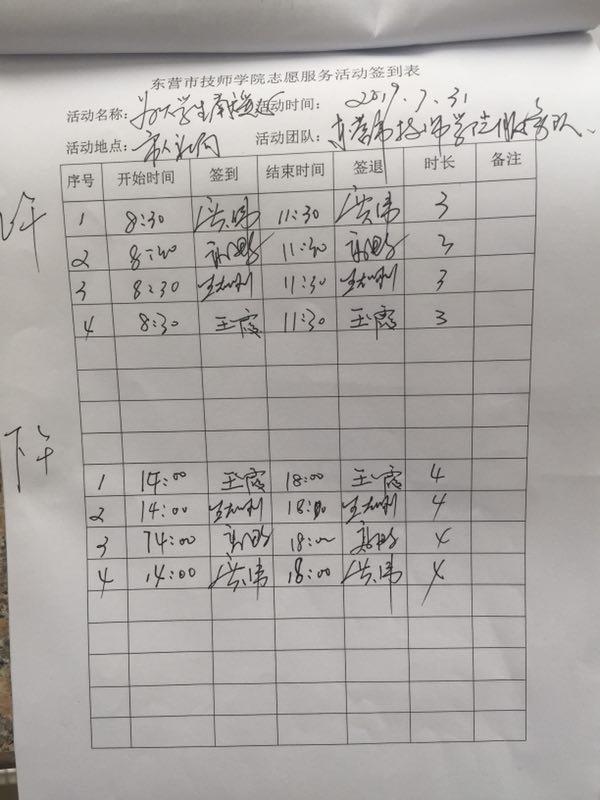 东营市技师学院志愿服务活动签到表
活动名称: 为大学生 活动时间: 2019.7.31
活动地点: 活动团队: 东营市技师学院服务队
序号 开始时间 签到 结束时间 签退 时长 备注
上午
1 8:30 洪伟 11:30 洪伟 3
2 8:30 11:30 3
3 8:30 11:30 3
4 8:30 王霞 11:30 王霞 3
下午
1 14:00 王霞 18:00 王霞 4
2 14:00 18:00 4
3 14:00 18:00 4
4 14:00 洪伟 18:00 洪伟 4